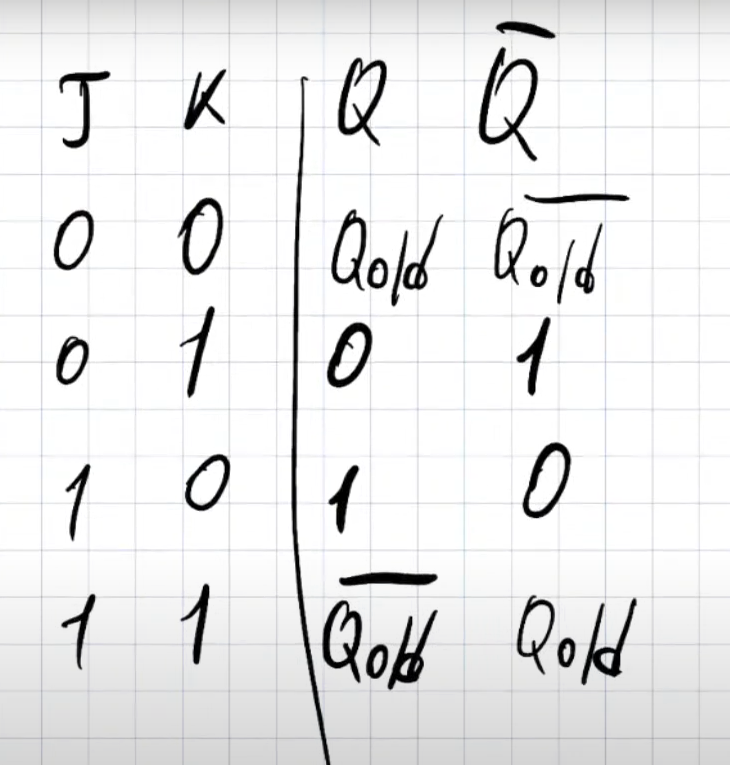 J K Q Q̅
0 0 Qold Q̅o̅l̅d̅
0 1 0 1
1 0 1 0
1 1 Q̅o̅l̅d̅ Qold